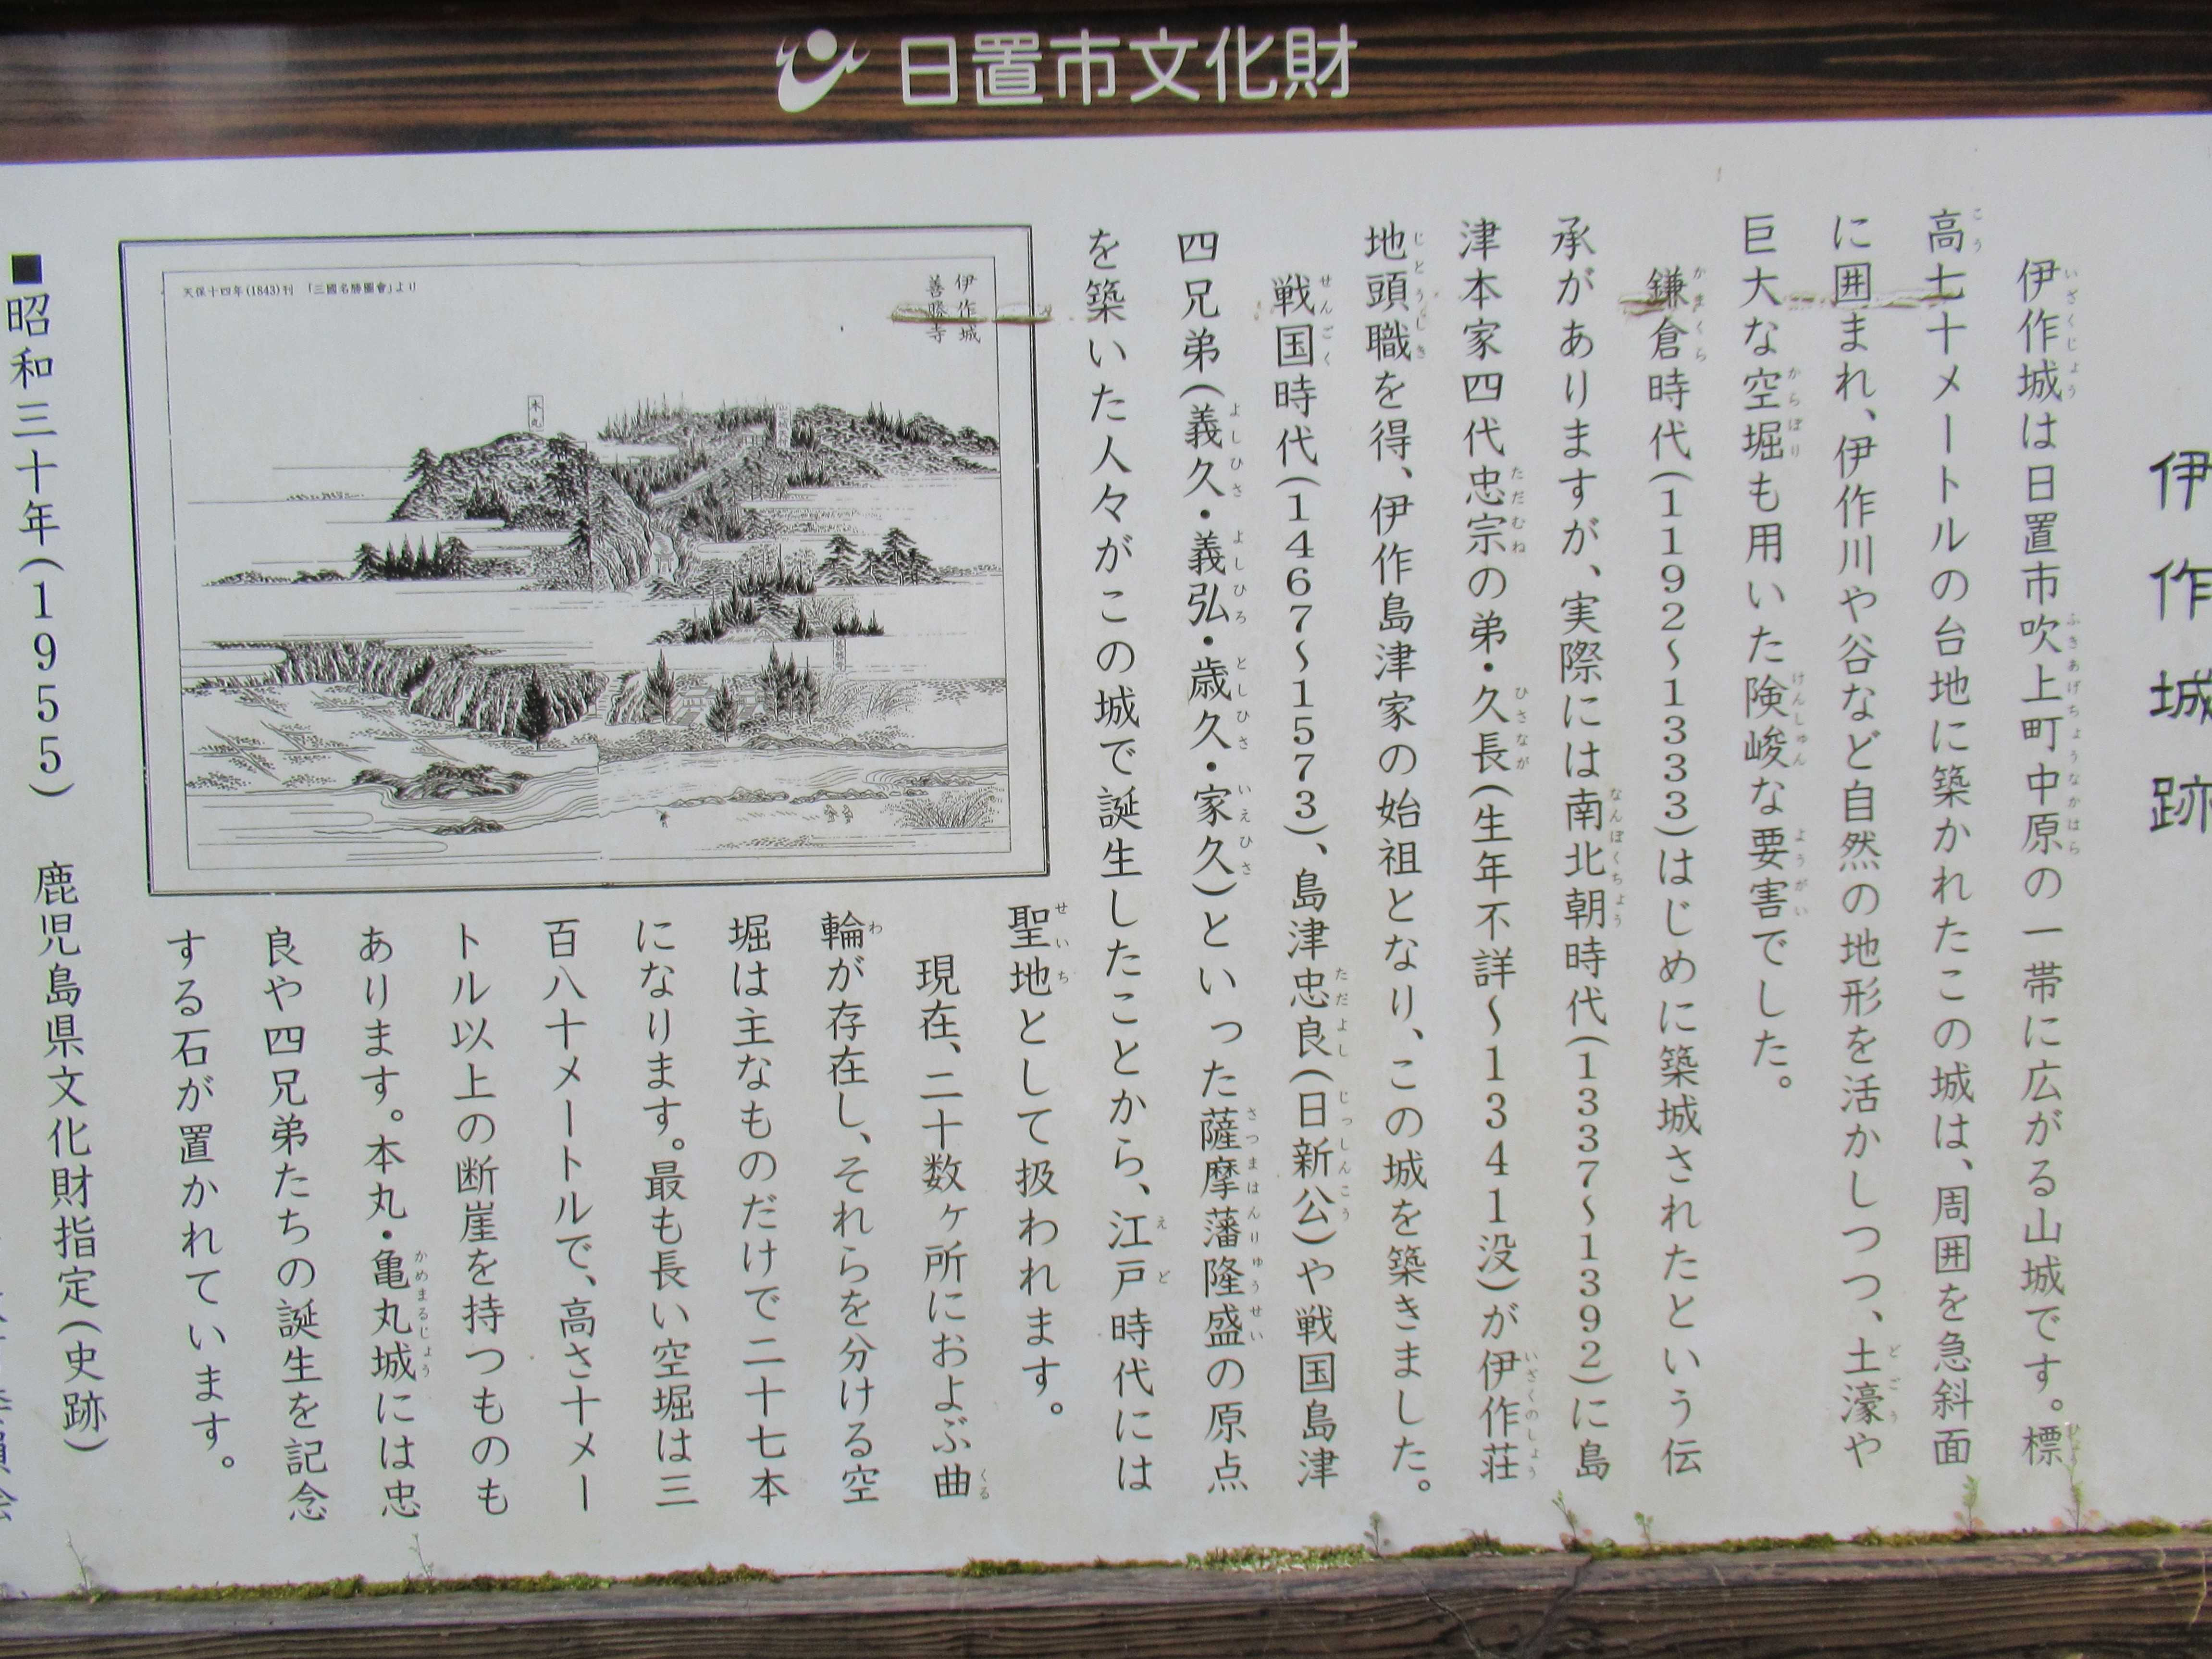 日置市文化財
伊作城跡
伊作城は日置市吹上町中原の一帯に広がる山城です。標
高七十メートルの台地に築かれたこの城は、周囲を急斜面
に囲まれ、伊作川や谷など自然の地形を活かしつつ、土濠や
巨大な空堀も用いた険峻な要害でした。
鎌倉時代(1192~1333)はじめに築城されたという伝
承がありますが、実際には南北朝時代(1337~1392)に島
津本家四代忠宗の弟・久長(生年不詳~1341没)が伊作荘
地頭職を得、伊作島津家の始祖となり、この城を築きました。
戦国時代(1467~1573)、島津忠良(日新公)や戦国島津
四兄弟(義久・義弘・歳久・家久)といった薩摩藩隆盛の原点
を築いた人々がこの城で誕生したことから、江戸時代には
聖地として扱われます。
現在、二十数ヶ所におよぶ曲
輪が存在し、それらを分ける空
堀は主なものだけで二十七本
になります。最も長い空堀は三
百八十メートルで、高さ十メー
トル以上の断崖を持つものも
あります。本丸・亀丸城には忠
良や四兄弟たちの誕生を記念
する石が置かれています。
伊作城
善勝寺
本丸
天保十四年(1843)刊 「三國名勝圖會」より
■昭和三十年(1955) 鹿児島県文化財指定(史跡)